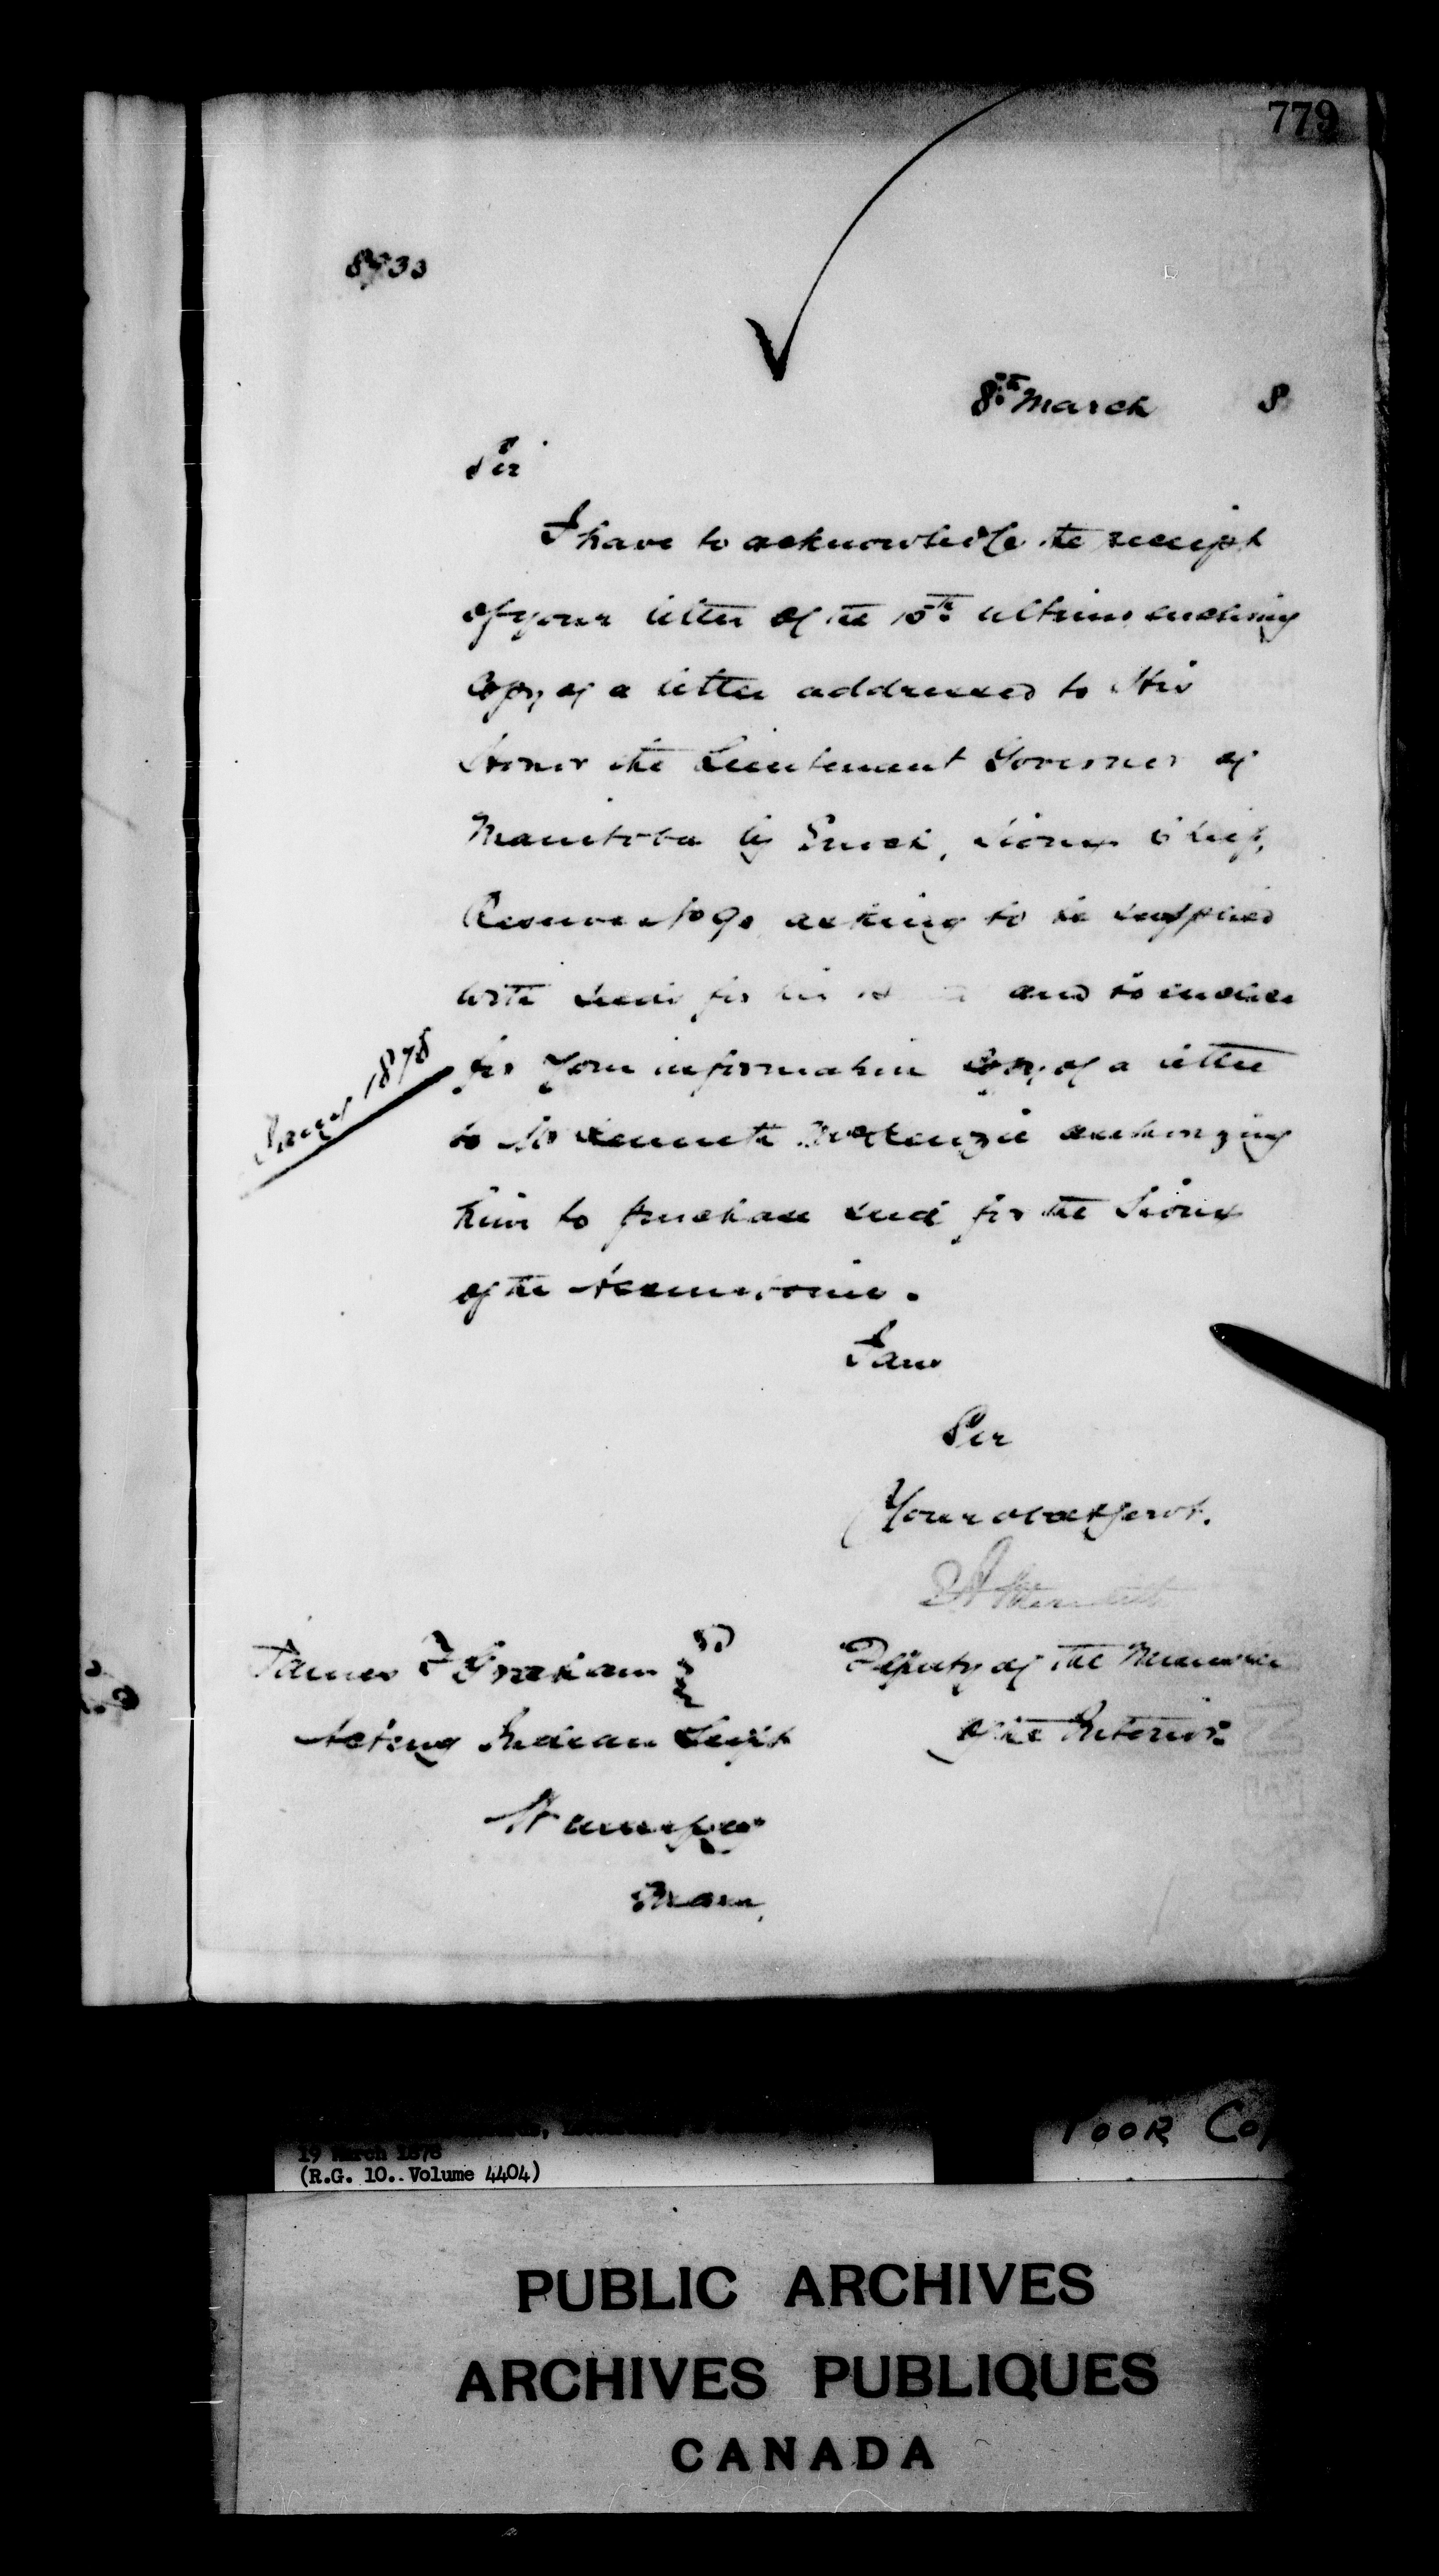 779
8th March 8
Sir
I have to acknowledge the receipt
of your letter of the 15th ultimo enclosing
Copy of a letter addressed to His
Honor the Lieutenant Governor of
Manitoba by Enock, Sioux Chief,
Reserve asking to be supplied
with seed for his and to enclose
for your information Copy of a letter
to Mr Kenneth McKenzie authorizing
him to purchase seed for the Sioux
of the Assiniboine.
1878
I am
Sir
Your obedt Servt.
Deputy of the Minister
of the Interior.
James F Graham Esq
Acting Indian Supt
Winnipeg
Man.
POOR CO
19 March 1878
(R.G. 10.. Volume 4404)
PUBLIC ARCHIVES
ARCHIVES PUBLIQUES
CANADA